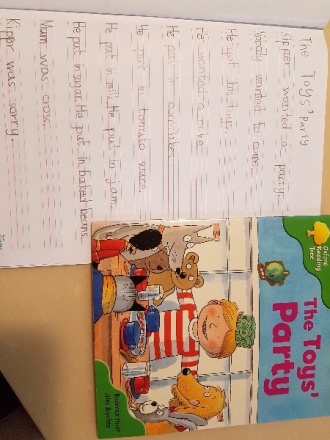 The Toys' Party
Kipper wanted a party.
Nobody wanted to come.
He got his toys.
He wanted a cake.
He put in cornflakes.
He put in tomato sauce.
He put in milk. He put in jam.
He put in sugar. He put in baked beans.
Mum was cross.
Kipper was sorry.
Oxford
Reading
Tree
The Toys'
Party
Roderick Hunt
Alex Brychta